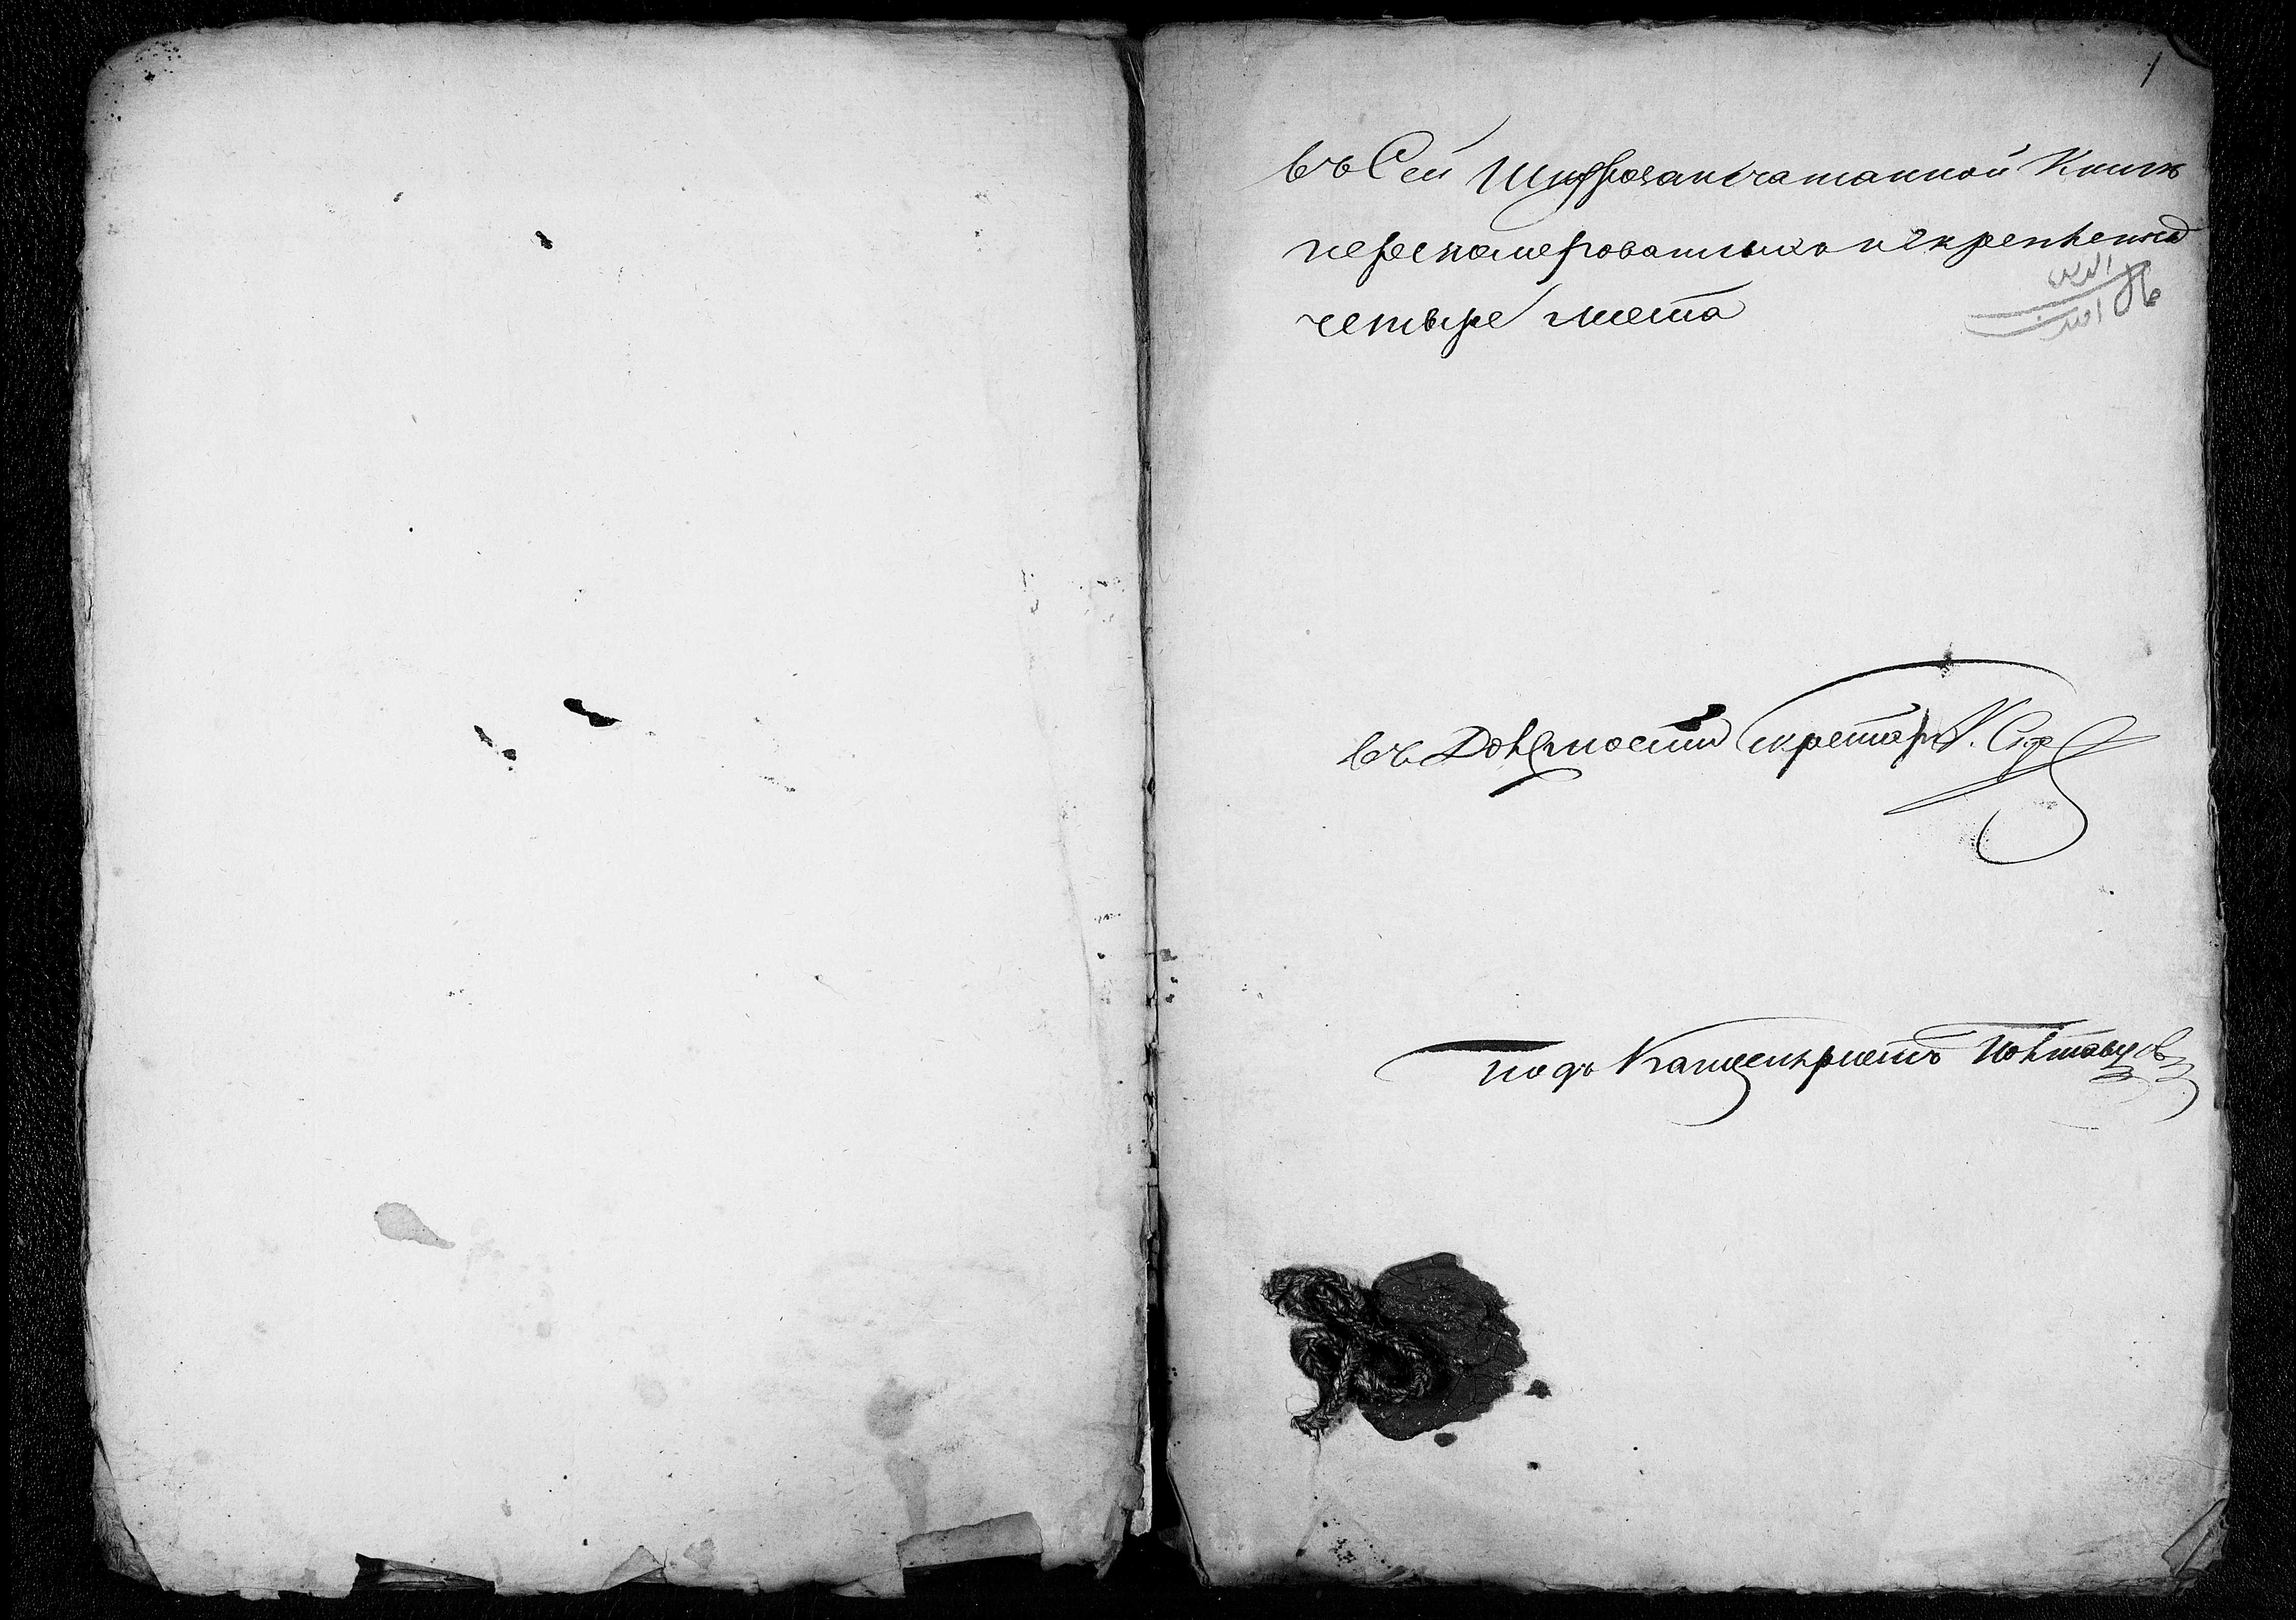 1
въ Сей Шнурозапечатанной Книгѣ
перенумерованныхъ и скрепленныхъ
четыре листа
въ Должности Секретаря
Подъ Канцеляристъ Полтавцовъ